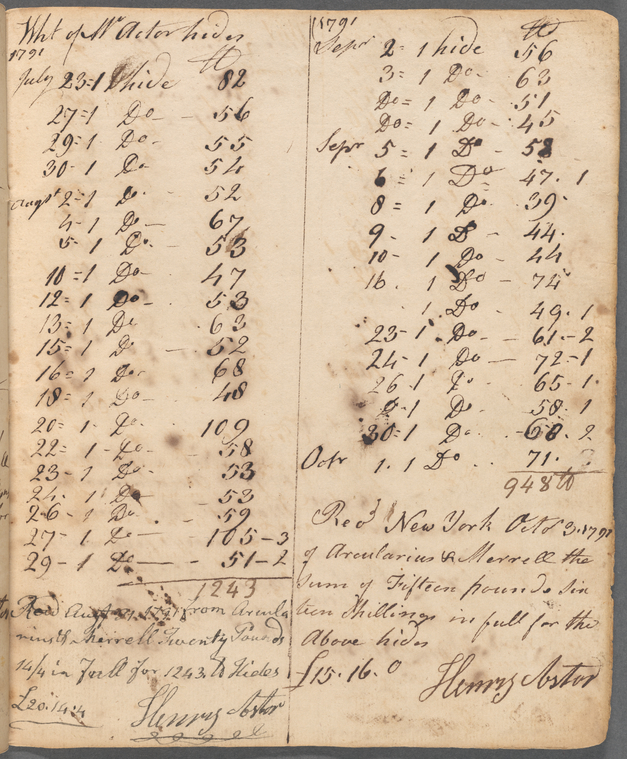 Wht of Mr Astor hides
1791 lb
July 23-1 hide 82
27=1 Do - 56
29=1 Do 55
30-1 Do 54
Augst 2=1 Do 52
4-1 Do 67
5-1 Do 53
10=1 Do 47
12=1 Do 53
13=1 Do 63
15=1 Do 52
16=1 Do 68
18=1 Do 48
20=1 Do 109
22=1-Do 58
23-1 Do 53
24-1 Do 53
26-1 Do 59
27-1 Do 105-3
29-1 Do 51-2
1243
Recd Augst 1791 from Arcula
rius & Merrell Twenty Pounds
14/4 in full for 1243 lb Hides
£20.14.4 Henry Astor
1791 lb
Sepr 2=1 hide 56
3=1 Do 63
Do=1 Do 51
Do=1 Do 45
Sepr 5=1 Do 58
6=1 Do 47.1
8=1 Do 39.
9-1 Do 44.
10-1 Do 44
16.1 Do 74
1 Do 49.1
23-1 Do 61-2
24-1 Do 72-1
26-1 Do 65-1
1 Do 58.1
30-1 Do 2
Octr 1.1 Do 71.
948 lb
Recd New York Octor 3.1791
of Arcularius & Merrell the
Sum of Fifteen pounds Six
teen Shillings in full for the
Above hides
£15.16.0 Henry Astor